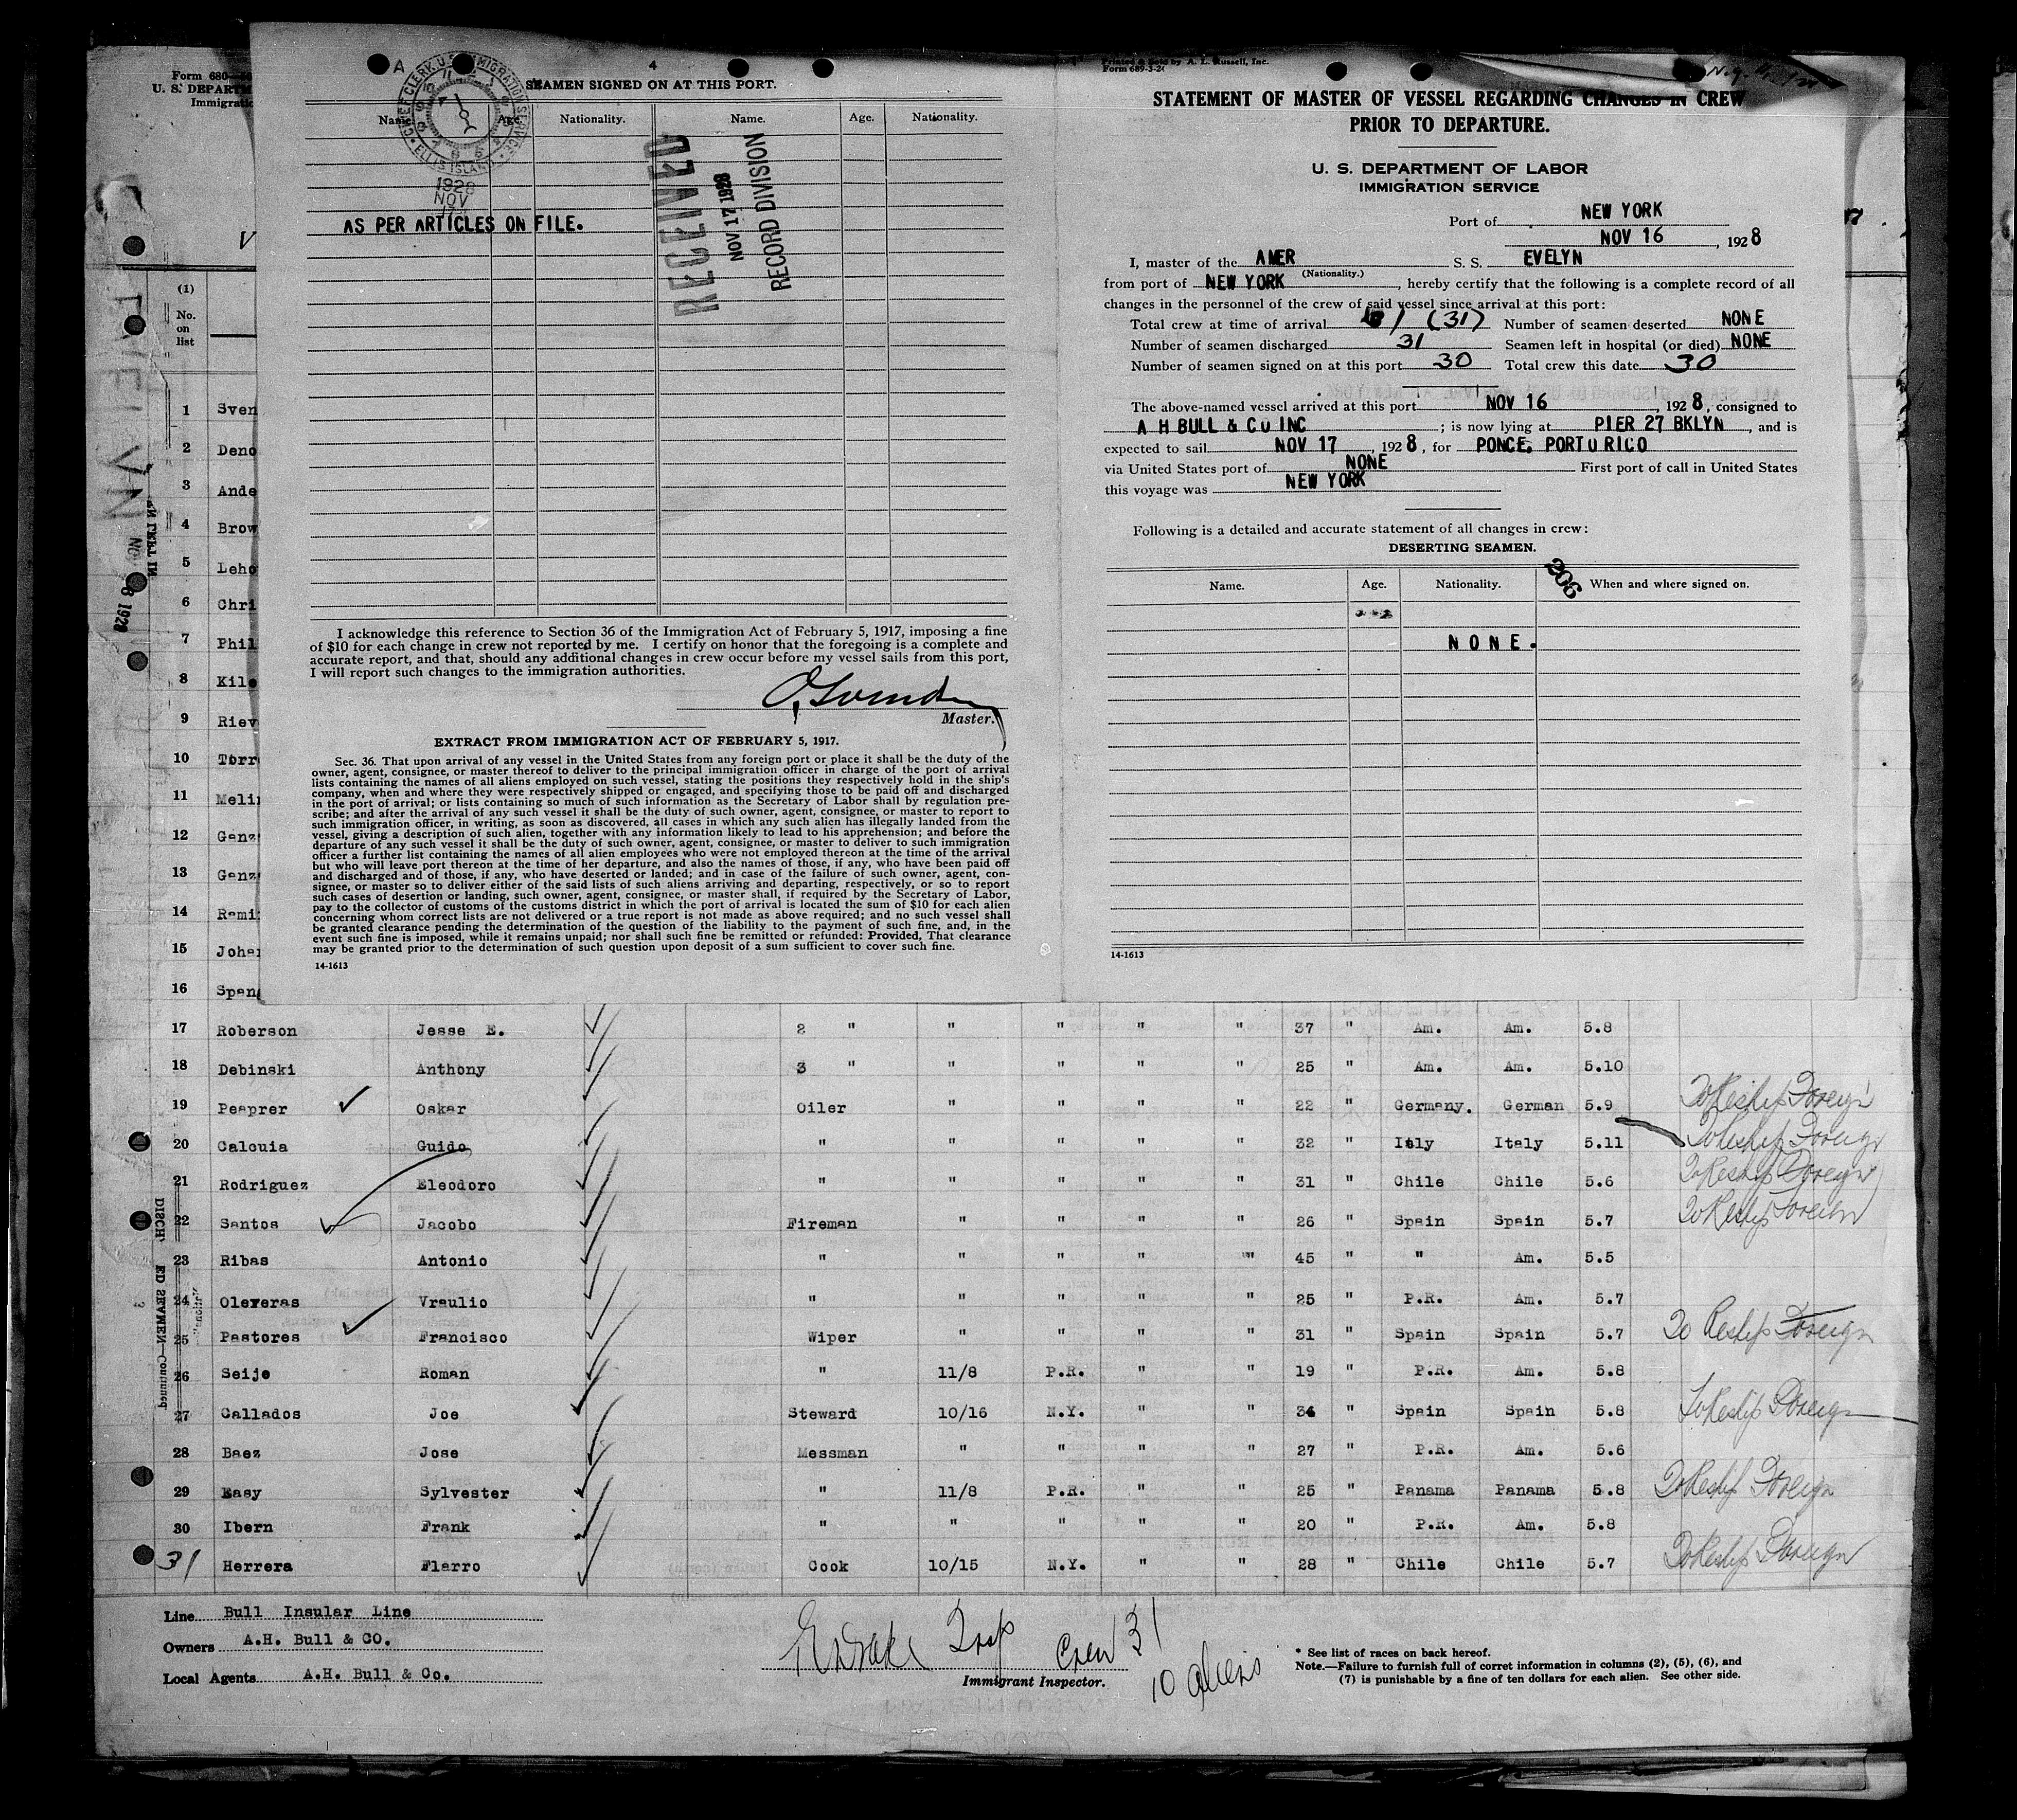 Form 680
U. S. DEPARTM
Immigratio
V
(1)
No.
on
list
1 Sven
2 Deno
3 Ande
4 Brow
5 Leho
6 Chri
7 Phil
8 Kile
9 Riev
10 Torr
11 Melin
12 Ganz
13 Genz
14 Rami
15 Johan
16 Span
EVELYN
A
4
SEAMEN SIGNED ON AT THIS PORT.
Name. Age. Nationality. Name. Age. Nationality.
CHIEF CLERK U.S. IMMIGRATION SERVICE
ELLIS ISLAND
1928
NOV
17
AS PER ARTICLES ON FILE.
RECEIVED
NOV 17 1928
RECORD DIVISION
I acknowledge this reference to Section 36 of the Immigration Act of February 5, 1917, imposing a fine
of $10 for each change in crew not reported by me. I certify on honor that the foregoing is a complete and
accurate report, and that, should any additional changes in crew occur before my vessel sails from this port,
I will report such changes to the immigration authorities.
Master.
EXTRACT FROM IMMIGRATION ACT OF FEBRUARY 5, 1917.
Sec. 36. That upon arrival of any vessel in the United States from any foreign port or place it shall be the duty of the
owner, agent, consignee, or master thereof to deliver to the principal immigration officer in charge of the port of arrival
lists containing the names of all aliens employed on such vessel, stating the positions they respectively hold in the ship's
company, when and where they were respectively shipped or engaged, and specifying those to be paid off and discharged
in the port of arrival; or lists containing so much of such information as the Secretary of Labor shall by regulation pre-
scribe; and after the arrival of any such vessel it shall be the duty of such owner, agent, consignee, or master to report to
such immigration officer, in writing, as soon as discovered, all cases in which any such alien has illegally landed from the
vessel, giving a description of such alien, together with any information likely to lead to his apprehension; and before the
departure of any such vessel it shall be the duty of such owner, agent, consignee, or master to deliver to such immigration
officer a further list containing the names of all alien employees who were not employed thereon at the time of the arrival
but who will leave port thereon at the time of her departure, and also the names of those, if any, who have been paid off
and discharged and of those, if any, who have deserted or landed; and in case of the failure of such owner, agent, con-
signee, or master so to deliver either of the said lists of such aliens arriving and departing, respectively, or so to report
such cases of desertion or landing, such owner, agent, consignee, or master shall, if required by the Secretary of Labor,
pay to the collector of customs of the customs district in which the port of arrival is located the sum of $10 for each alien
concerning whom correct lists are not delivered or a true report is not made as above required; and no such vessel shall
be granted clearance pending the determination of the question of the liability to the payment of such fine, and, in the
event such fine is imposed, while it remains unpaid; nor shall such fine be remitted or refunded: Provided, That clearance
may be granted prior to the determination of such question upon deposit of a sum sufficient to cover such fine.
14-1613
Printed & Sold by A. L. Russell, Inc.
Form 689-3-2
STATEMENT OF MASTER OF VESSEL REGARDING CHANGES IN CREW
PRIOR TO DEPARTURE.
U. S. DEPARTMENT OF LABOR
IMMIGRATION SERVICE
Port of NEW YORK
NOV 16, 1928
I, master of the AMER S. S. EVELYN
(Nationality.)
from port of NEW YORK, hereby certify that the following is a complete record of all
changes in the personnel of the crew of said vessel since arrival at this port:
Total crew at time of arrival 31 (31) Number of seamen deserted NONE
Number of seamen discharged 31 Seamen left in hospital (or died) NONE
Number of seamen signed on at this port 30 Total crew this date 30
The above-named vessel arrived at this port NOV 16, 1928, consigned to
A H BULL & CO INC; is now lying at PIER 27 BKLYN, and is
expected to sail NOV 17, 1928, for PONCE, PORTO RICO
via United States port of NONE First port of call in United States
this voyage was NEW YORK
Following is a detailed and accurate statement of all changes in crew:
DESERTING SEAMEN.
206
Name. Age. Nationality. When and where signed on.
NONE.
14-1613
17 Roberson Jesse E. 2 " " " " " 37 " Am. Am. 5.8
18 Debinski Anthony 3 " " " " " 25 " Am. Am. 5.10
19 Peaprer Oskar Oiler " " " " 22 " Germany. German 5.9 To Reship Foreign
20 Calcuia Guido " " " " " 32 " Itly Italy 5.11 To Reship Foreign
21 Rodriguez Eleodoro " " " " " 31 " Chile Chile 5.6 To Reship Foreign
22 Santos Jacobo Fireman " " " " 26 " Spain Spain 5.7 To Reship Foreign
23 Ribas Antonio " " " " " 45 " " Am. 5.5
24 Oleveras Vraulio " " " " " 25 " P.R. Am. 5.7
25 Pastores Francisco Wiper " " " " 31 " Spain Spain 5.7 To Reship Foreign
26 Seije Roman " 11/8 P.R. " " 19 " P.R. Am. 5.8
27 Callados Joe Steward 10/16 N.Y. " " 34 " Spain Spain 5.8 To Reship Foreign
28 Baez Jose Messman " " " " 27 " P.R. Am. 5.6
29 Easy Sylvester " 11/8 P.R. " " 25 " Panama Panama 5.8 To Reship Foreign
30 Ibern Frank " " " " " 20 " P.R. Am. 5.8
31 Herrera Flarro Cook 10/15 N.Y. " " 28 " Chile Chile 5.7 To Reship Foreign
Line Bull Insular Line
Owners A.H. Bull & CO.
Local Agents A.H. Bull & Co.
Insp Crew 31
10 aliens
Immigrant Inspector.
* See list of races on back hereof.
Note.—Failure to furnish full of corret information in columns (2), (5), (6), and
(7) is punishable by a fine of ten dollars for each alien. See other side.